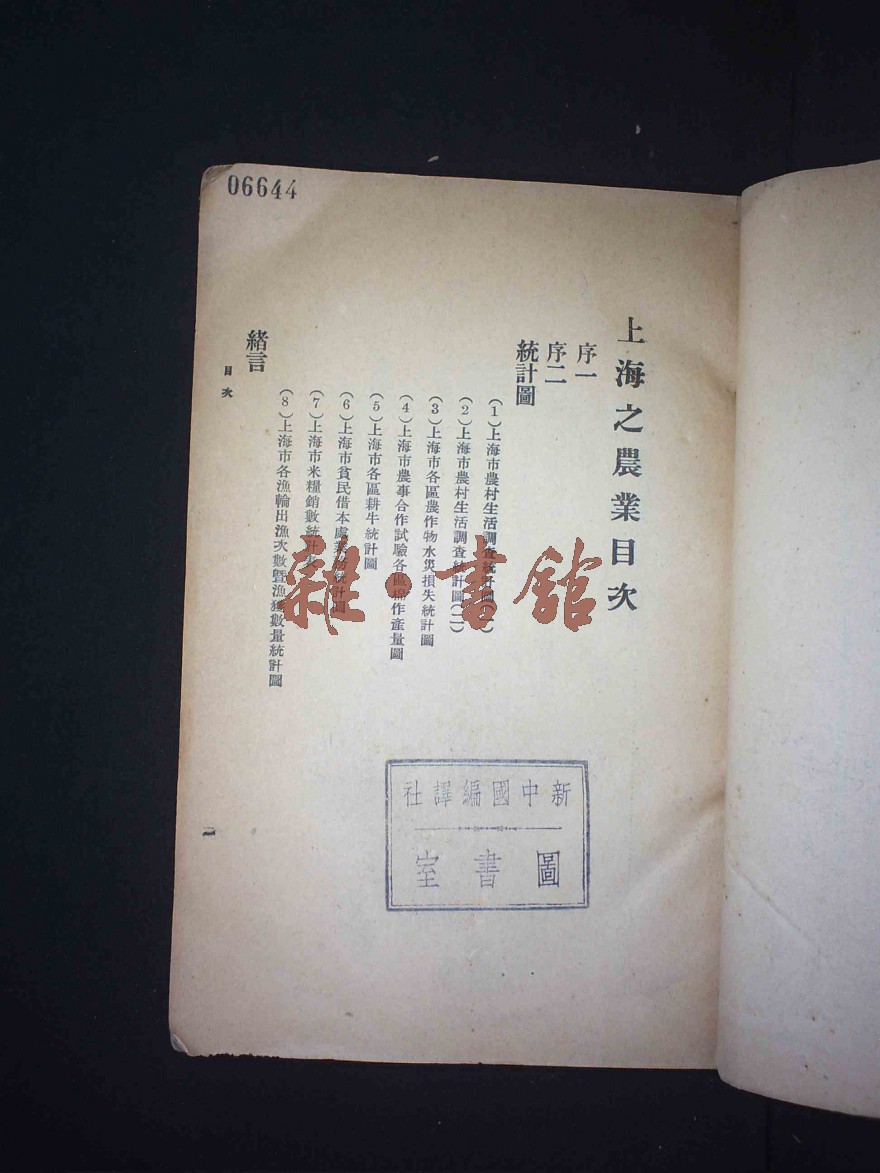 06644
上海之農業目次
序一
序二
統計圖
(1)上海市農村生活調查統計圖(一)
(2)上海市農村生活調查統計圖(二)
(3)上海市各區農作物水災損失統計圖
(4)上海市農事合作試驗各區棉作產量圖
(5)上海市各區耕牛統計圖
(6)上海市貧民借本處業務統計圖
(7)上海市米糧銷數統計
(8)上海市各漁輪出漁次數暨漁獲數量統計圖
緒言
目次
一
雜·書館
新中國編譯社
圖書室